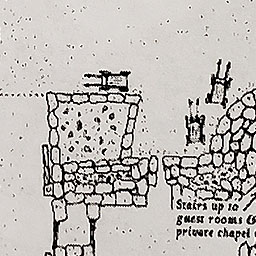 Stairs up to
guest rooms &
private chapel